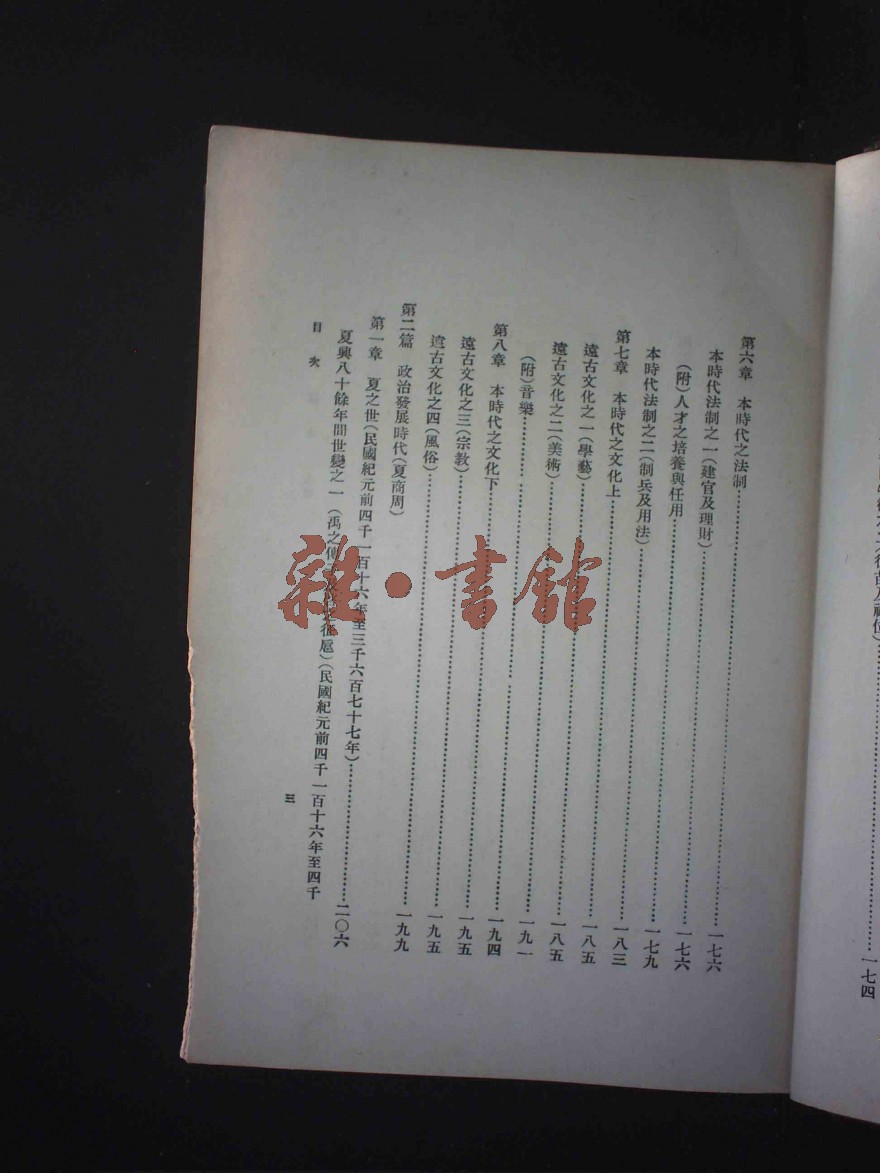 一七四
第六章 本時代之法制……一七六
本時代法制之一（建官及理財）……一七六
（附）人才之培養與任用……一七九
本時代法制之二（制兵及用法）……一八三
第七章 本時代之文化上……一八五
遠古文化之一（學藝）……一八五
遠古文化之二（美術）……一九一
（附）音樂……一九四
第八章 本時代之文化下……一九五
遠古文化之三（宗教）……一九五
遠古文化之四（風俗）……一九九
第二篇 政治發展時代（夏商周）
第一章 夏之世（民國紀元前四千一百十六年至三千六百七十七年）……二〇六
夏興八十餘年間世變之一（禹之傳 征扈）（民國紀元前四千一百十六年至四千
目次
三
雜·書館